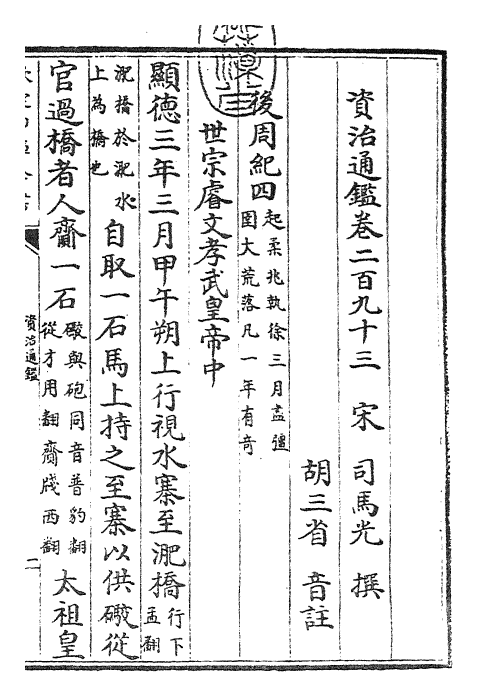 資治通鑑卷二百九十三 宋 司馬光 撰
胡三省 音註
後周紀四 起柔兆執徐三月盡彊
圉大荒落凡一年有奇
世宗睿文孝武皇帝中
顯德三年三月甲午朔上行視水寨至淝橋 行下
孟翻
淝橋於淝水
上為橋也 自取一石馬上持之至寨以供礮從
官過橋者人齎一石 礮與砲同音普豹翻
從才用翻齎牋西翻 太祖皇
資治通鑑
二